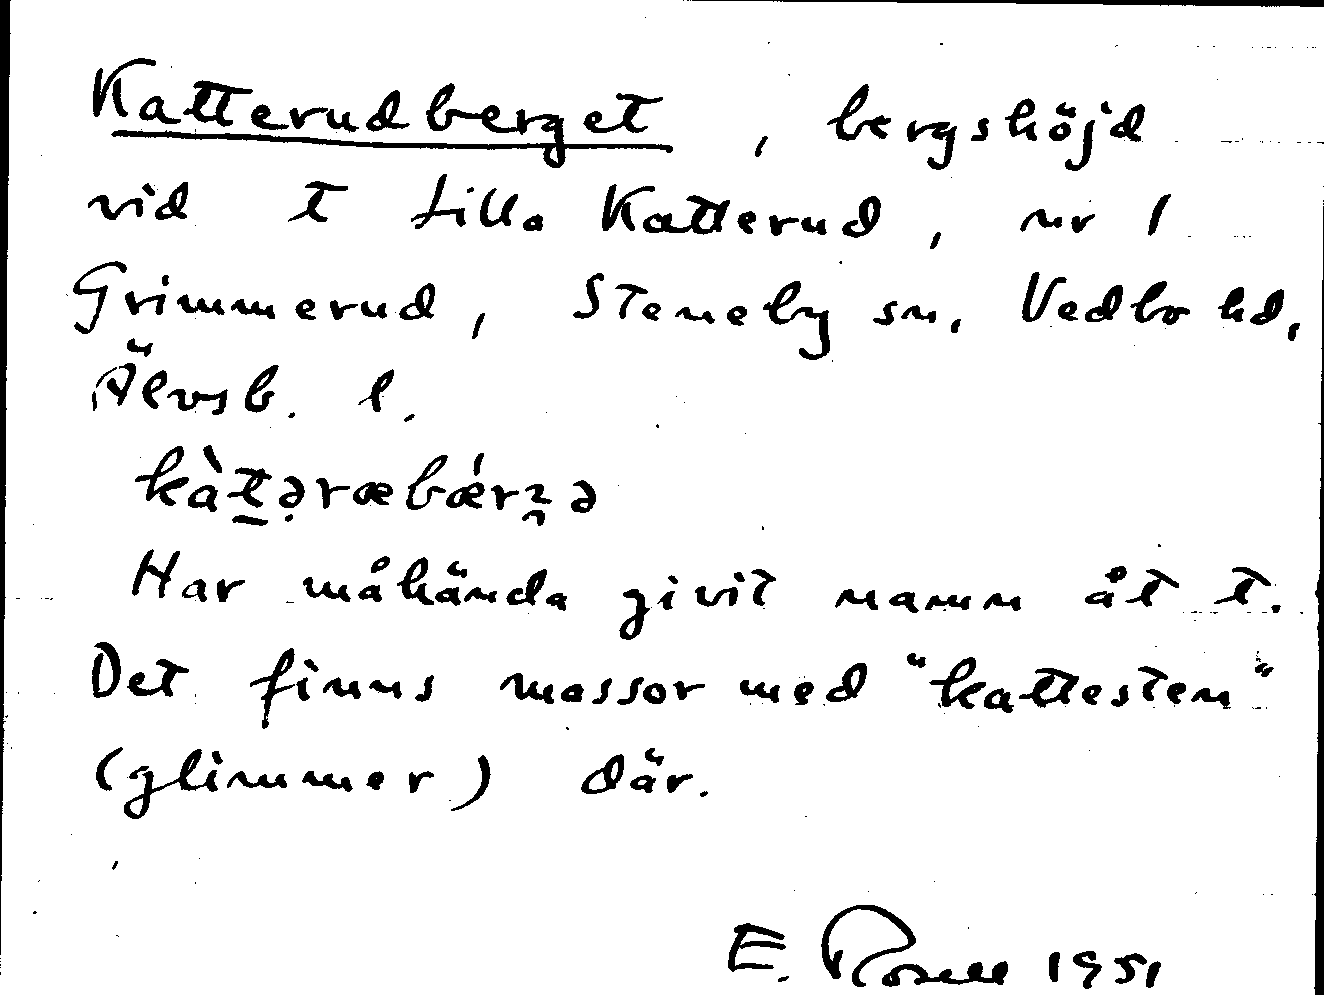 Katterudberget, bergshöjd
vid t Lilla Katterud, nr 1
Grimmerud, Steneby sn, Vedbo hd,
Älvsb. l.
kàt̠ə̣ræbǽrʒə
Har måhända givit namn åt t.
Det finns massor med "kattesten"
(glimmer) där.
E. Rosell 1951